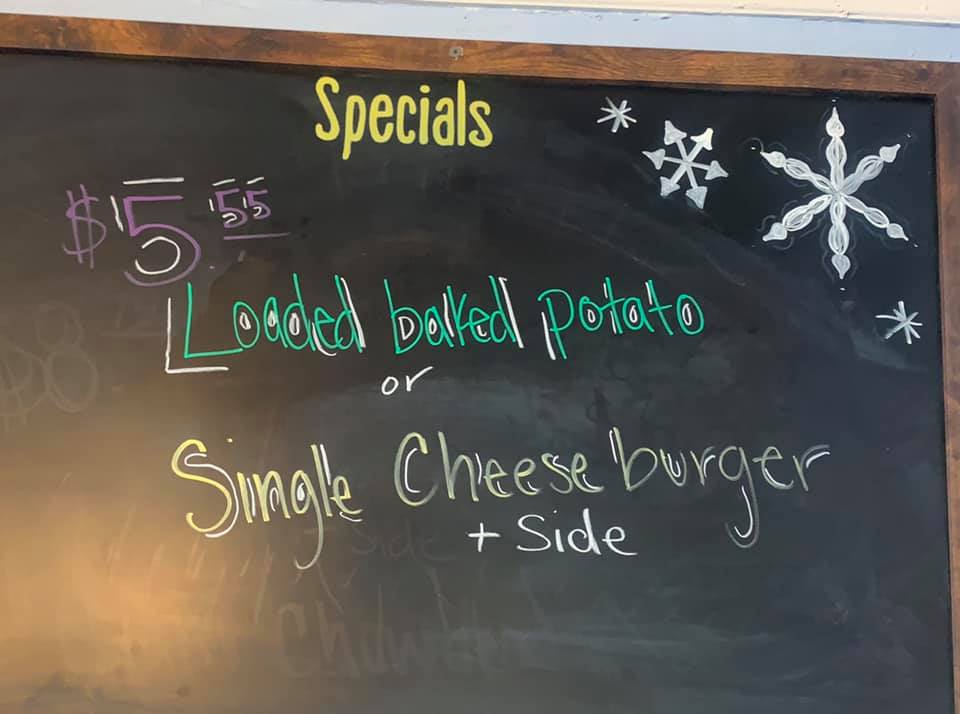 Specials
$5.55
Loaded baked potato
or
Single Cheese burger
+ Side
$8
Side